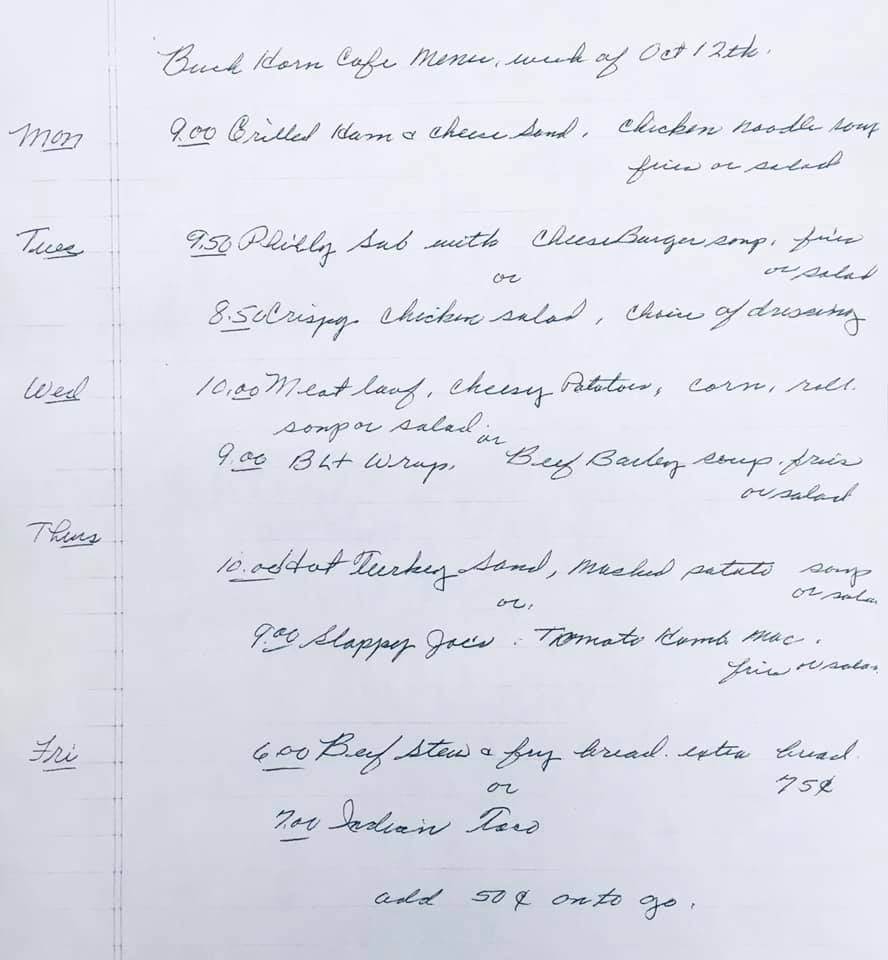 Buck Horn Cafe Menu, week of Oct 12th.
Mon 9.00 Grilled Ham & cheese Sand, chicken noodle soup
fries or salad
Tues 9.50 Philly Sub with CheeseBurger soup, fries
or or salad
8.50 Crispy chicken salad, choice of dressing
Wed 10.00 Meat loaf, cheesy Potatoes, corn, roll.
soup or salad or
9.00 BLt Wrap, Beef Barley soup. fries
or salad
Thurs
10.00 Hot Turkey Sand, mashed potato soup
or. or sala
9.00 Slappy Joe's : Tomato Hamb. Mac.
fries or salad
Fri 6.00 Beef Stew & fry bread. extra bread.
or 75¢
7.00 Indian Taco
add 50¢ on to go.